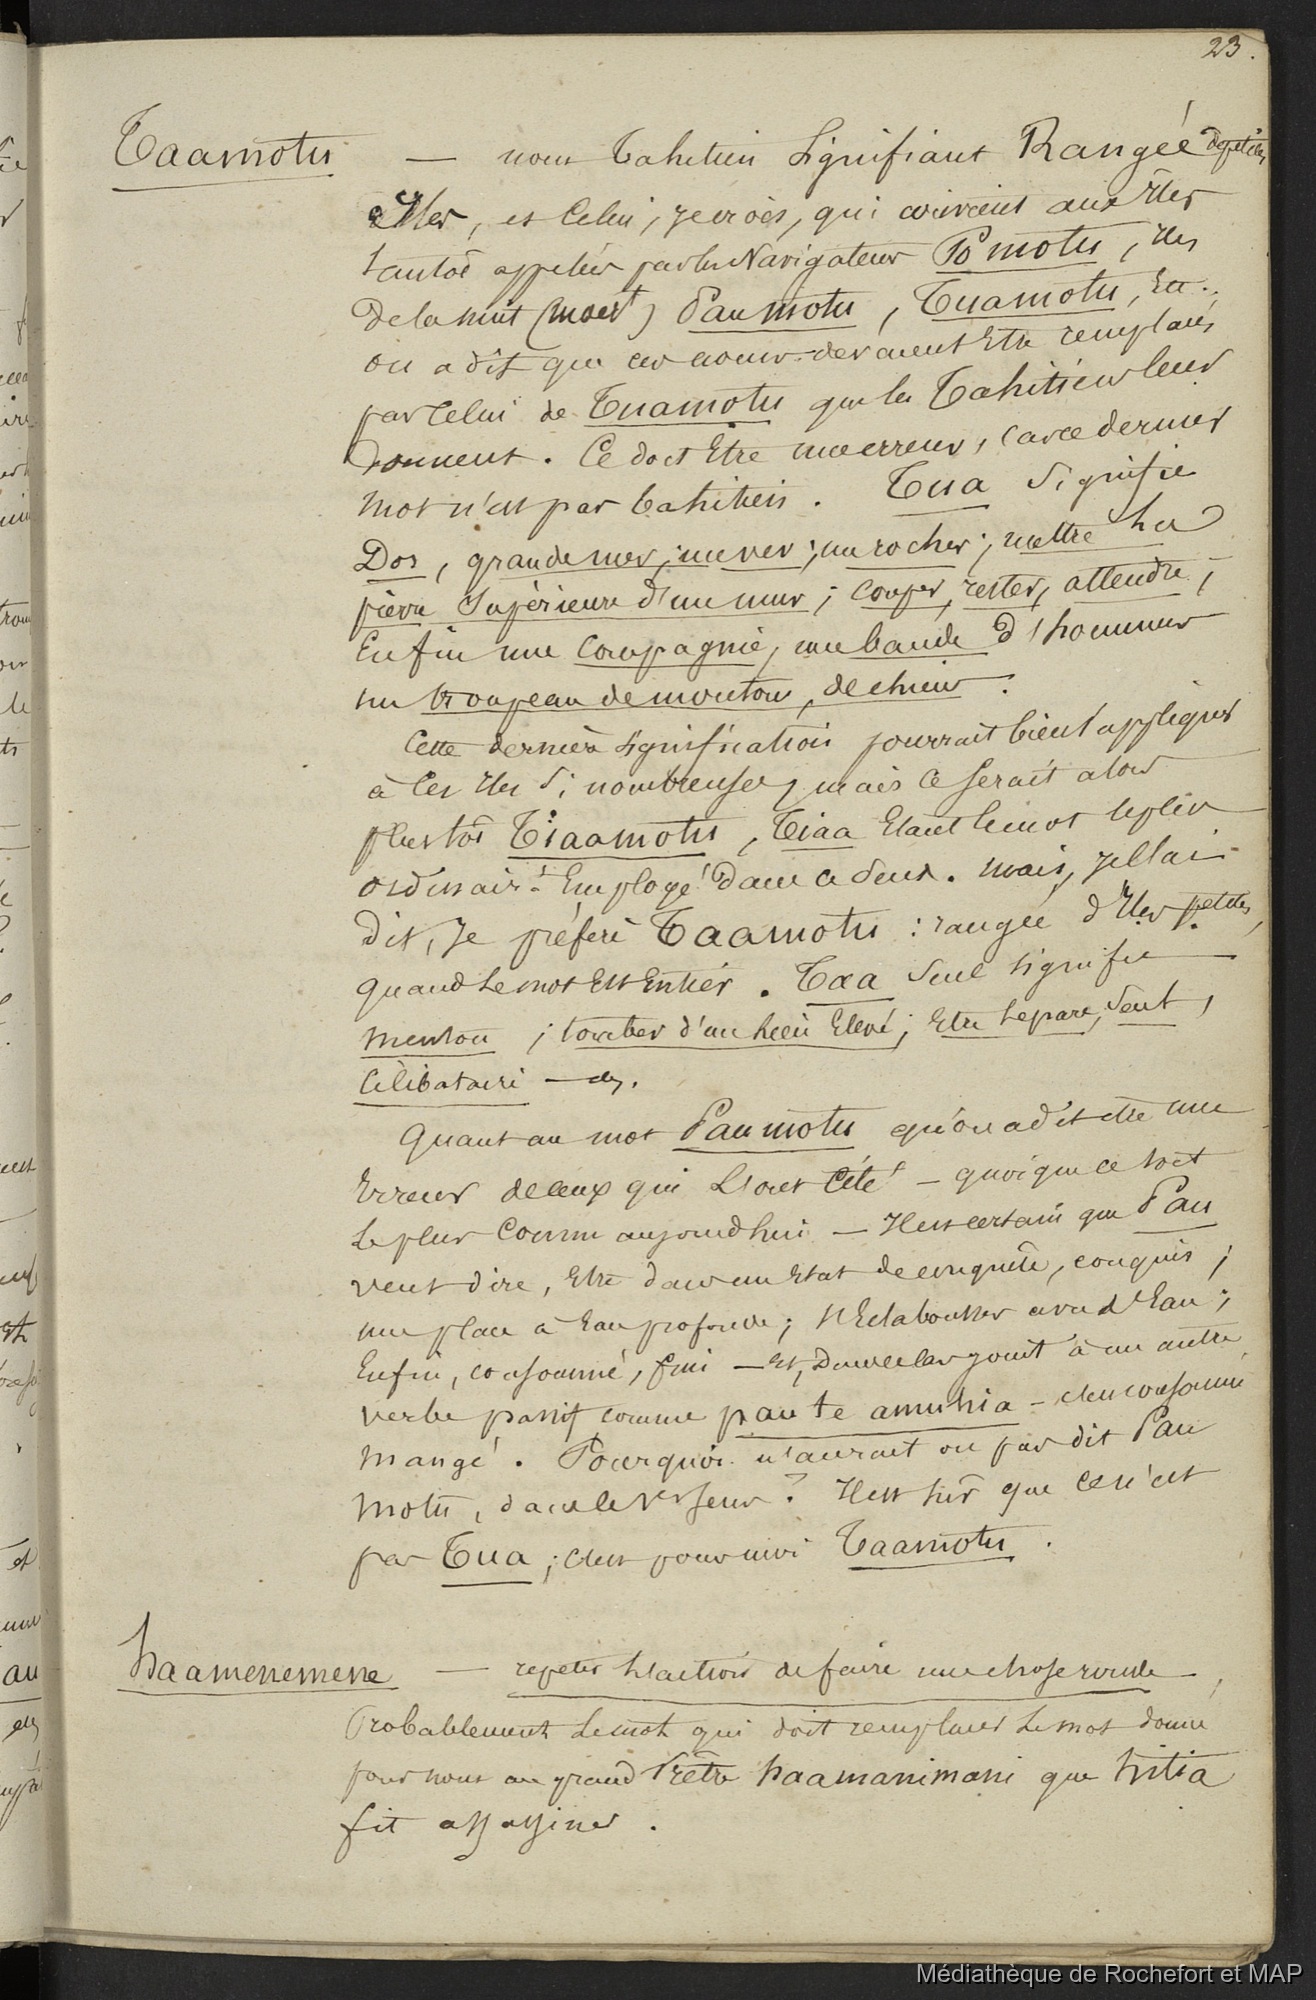 23.
Taamotu — nom Tahitien signifiant Rangée de petites
Iles, et celui, je crois, qui convient aux Iles
tantôt appelées par les Navigateurs Pômotu, Iles
de la nuit (mort) Paumotu, Tuamotu, Etc.;
on a dit que ces noms devaient Etre remplacés
par celui de Tuamotu que les Tahitiens leur
donnent. Ce doit Etre une erreur, car ce dernier
mot n'est pas tahitien. Tua signifie
Dos, grande mer; une ver; un rocher; mettre la
pierre supérieure d'un mur; couper, rester, attendre;
Enfin une compagnie, une bande d'hommes
un troupeau de moutons, de chiens.
Cette dernière signification pourrait bien s'appliquer
à ces Iles si nombreuses, mais ce serait alors
plustôt Tiaamotu, Tiaa Etant le mot le plus
ordinairt Employé dans ce sens. Mais, je l'ai
dit, je préfère Taamotu: rangée d'Iles petites,
quand le mot Est Entier. Taa seul signifie
menton; tomber d'un lieu Elevé; Etre séparé, seul,
célibataire — &.
Quant au mot Paumotu qu'on a dit etre une
Erreur de ceux qui l'ont cité — quoique ce soit
le plus connu aujourd'hui — Il est certain que Pau
veut dire, Etre dans un Etat de conquête, conquis;
une place à Eau profonde; s'Eclabousser avec d'Eau;
Enfin, consommé, fini — Et, dans ce cas joint à un autre
verbe passif comme pau te amuhia — c'est consommé
mangé. Pourquoi n'aurait on pas dit Pau
motu, dans le 1er sens? Il est sûr que ce n'est
pas Tua; c'est pour moi Taamotu.
haamenemene — repeter l'action de faire une chose ronde —,
Probablement le mot qui doit remplacer le mot donné
pour nom au grand Prêtre haamanimani que hitia
fit assassiner.
Médiathèque de Rochefort et MAP